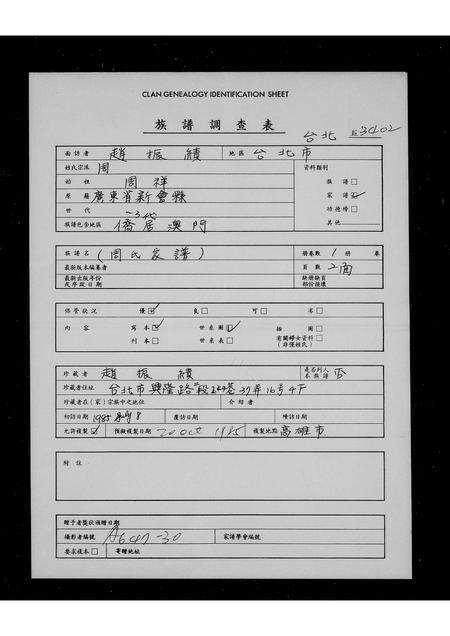 CLAN GENEALOGY IDENTIFICATION SHEET
族譜調查表
台北 3402
面訪者 趙振績 地區 台北市
姓氏宗派 周 資料類別
始祖 周祥 族譜□
原籍 廣東省新會縣 家譜☑
世代 一3代 功德榜□
族譜包含地區 僑居澳門 其他
族譜名 (周氏家譜) 冊卷數 1 冊 卷
最新版本編纂者 頁數 2面
最新出版年份或序跋日期 缺冊缺頁部份損壞
保管狀況 優☑ 良□ 可□ 劣□
內容 寫本☑ 世系圖☑ 插圖□
刊本□ 世系表□ 有關婦女資料(非僅姓氏)□
珍藏者 趙振績 是否列入本族譜 否
珍藏者住址 台北市興隆路 段244巷37弄16号4F
珍藏者在(家)宗族中之地位 介紹者
初訪日期 1985 8 覆訪日期 續訪日期
允許複製☑ 預擬複製日期 20 Oct 1985 複製地點 高雄市
附註
贈予者獎狀領贈日期
攝影者編號 A647-30 家譜學會編號
要求複本□ 寄贈地址